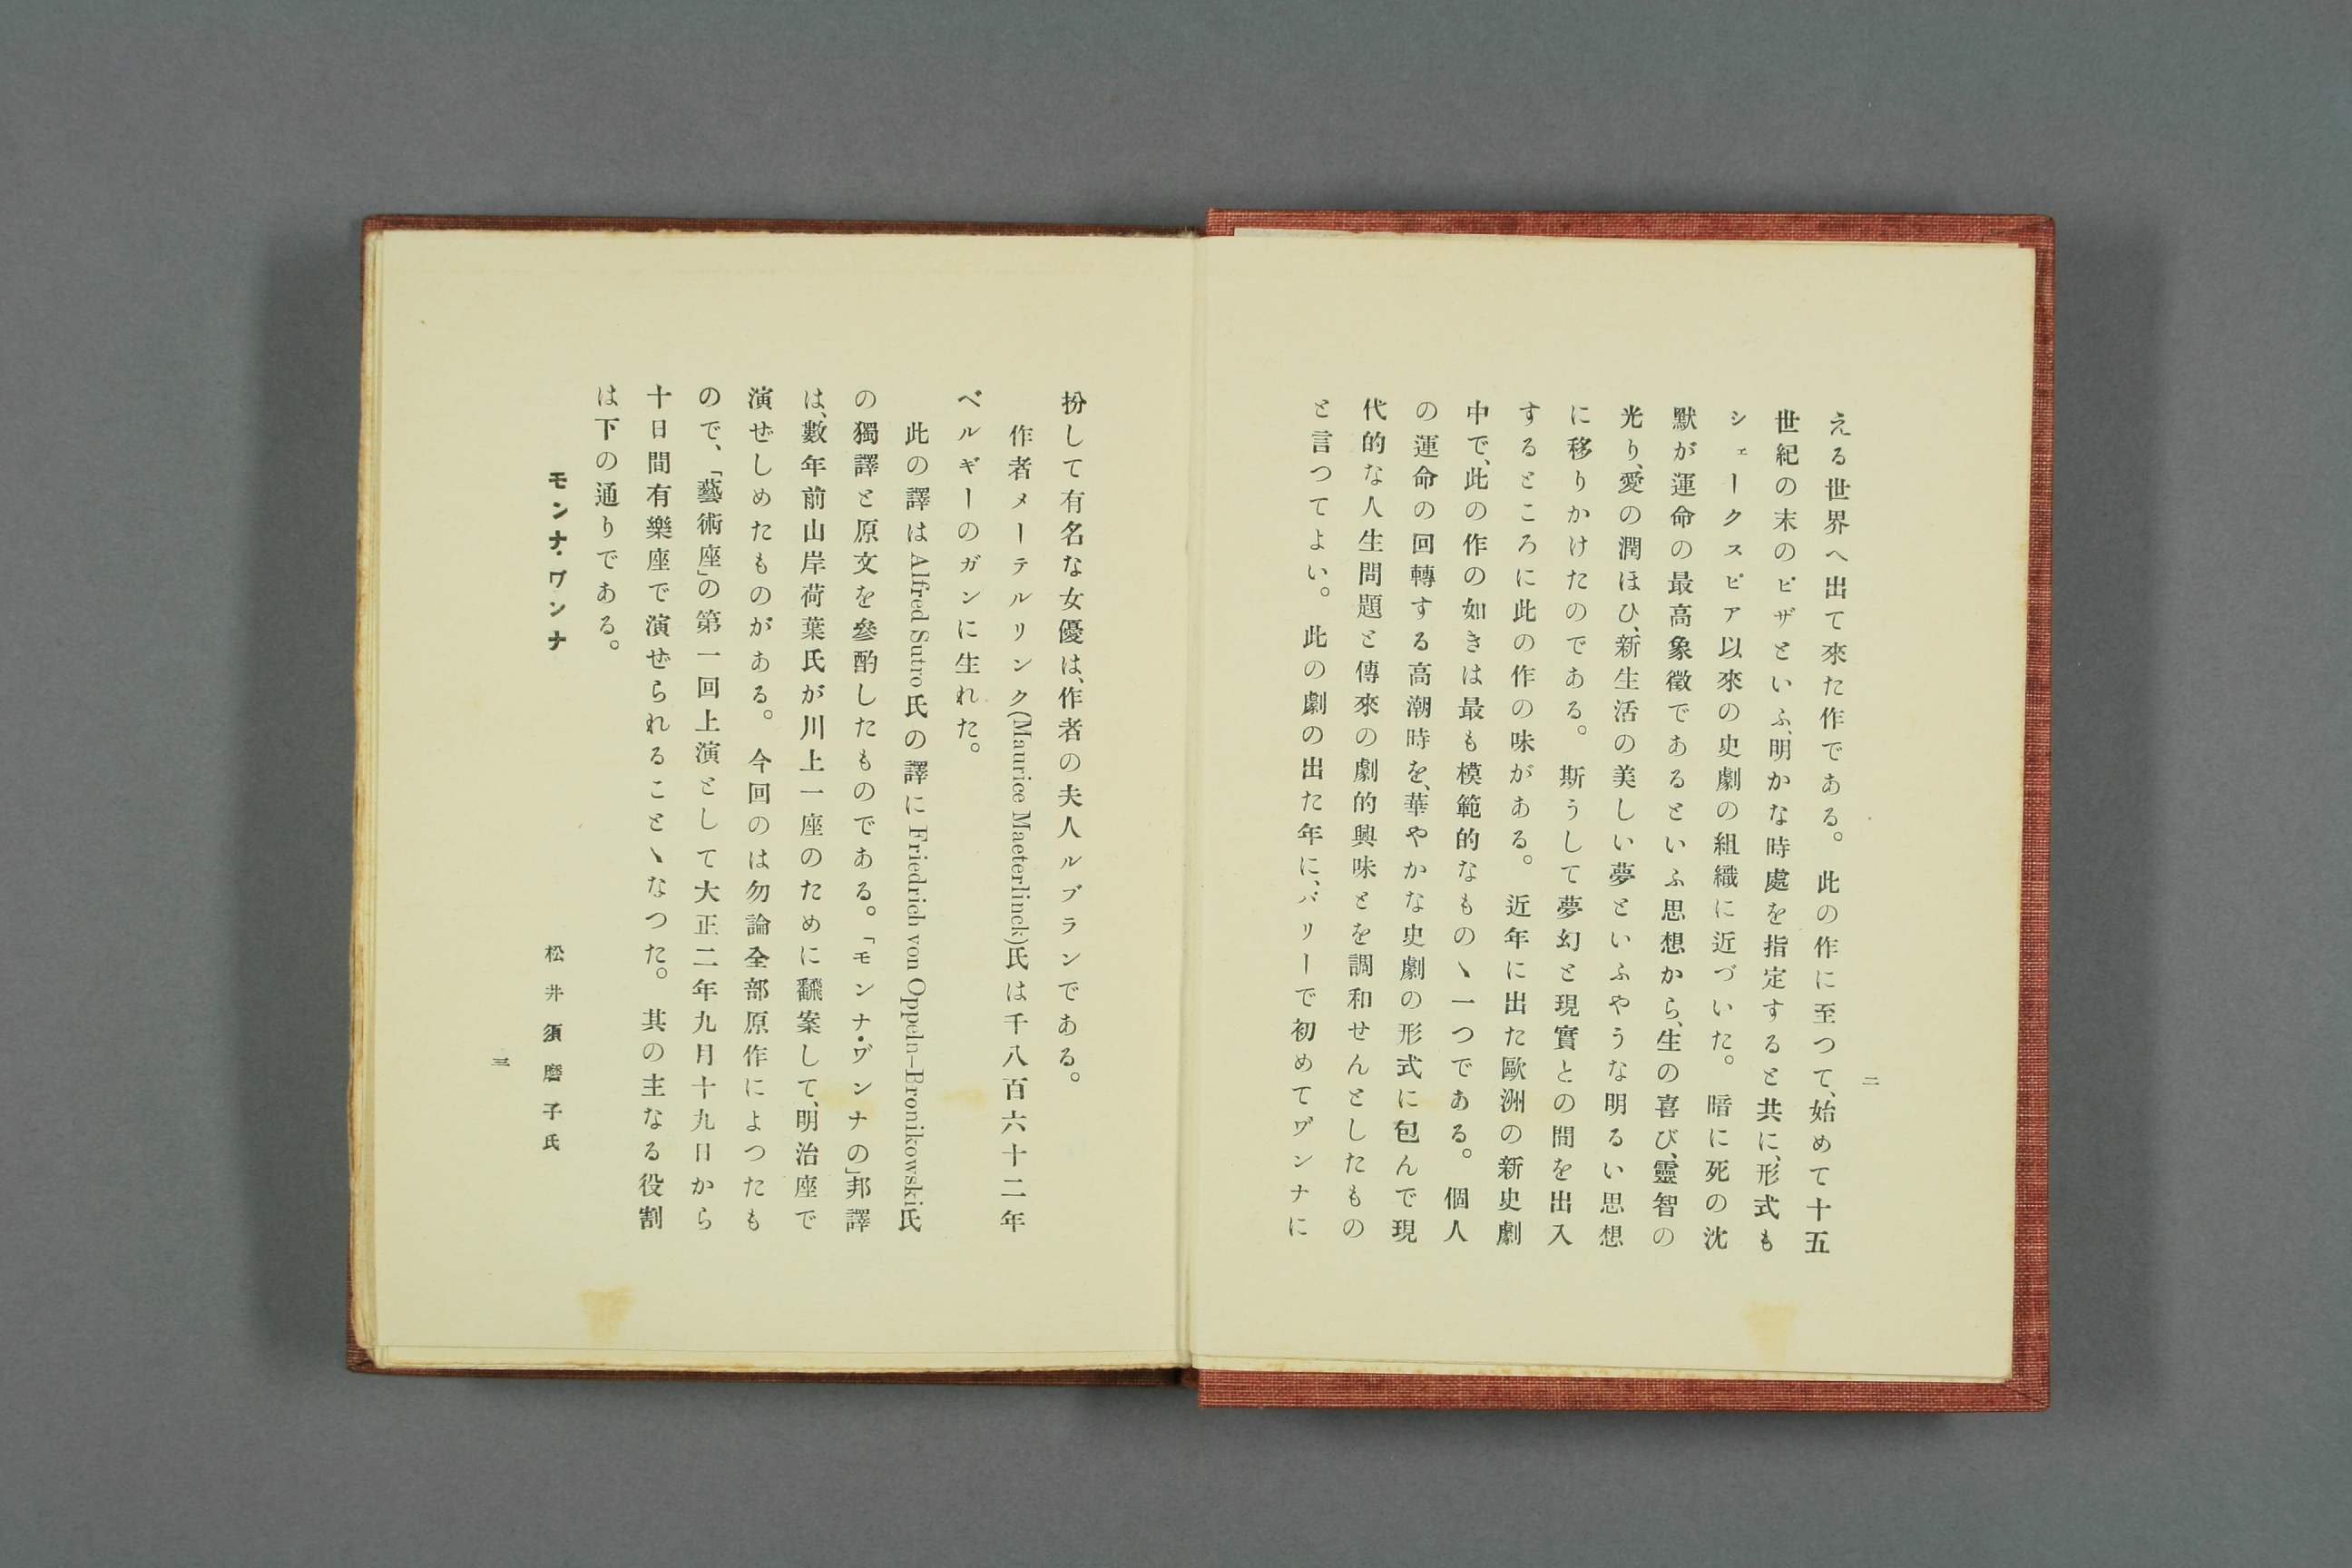 二
える世界へ出て來た作である。此の作に至つて、始めて十五
世紀の末のピザといふ、明かな時處を指定すると共に、形式も
シェークスピア以來の史劇の組織に近づいた。暗に死の沈
默が運命の最高象徵であるといふ思想から、生の喜び、靈智の
光り、愛の潤ほひ、新生活の美しい夢といふやうな明るい思想
に移りかけたのである。斯うして夢幻と現實との間を出入
するところに此の作の味がある。近年に出た歐洲の新史劇
中で、此の作の如きは最も模範的なものヽ一つである。個人
の運命の回轉する高潮時を、華やかな史劇の形式に包んで現
代的な人生問題と傳來の劇的興味とを調和せんとしたもの
と言つてよい。此の劇の出た年に、パリーで初めてヷンナに
扮して有名な女優は、作者の夫人ルブランである。
作者メーテルリンク(Maurice Maeterlinck)氏は千八百六十二年
ベルギーのガンに生れた。
此の譯は Alfred Sutro 氏の譯に Friedrich von Oppeln-Bronikowski 氏
の獨譯と原文を參酌したものである。「モンナ・ヷンナの」邦譯
は、數年前山岸荷葉氏が川上一座のために飜案して、明治座で
演ぜしめたものがある。今回のは勿論全部原作によつたも
ので、「藝術座」の第一回上演として大正二年九月十九日から
十日間有樂座で演ぜられることヽなつた。其の主なる役割
は下の通りである。
モンナ・ヷンナ 松井須磨子氏
三